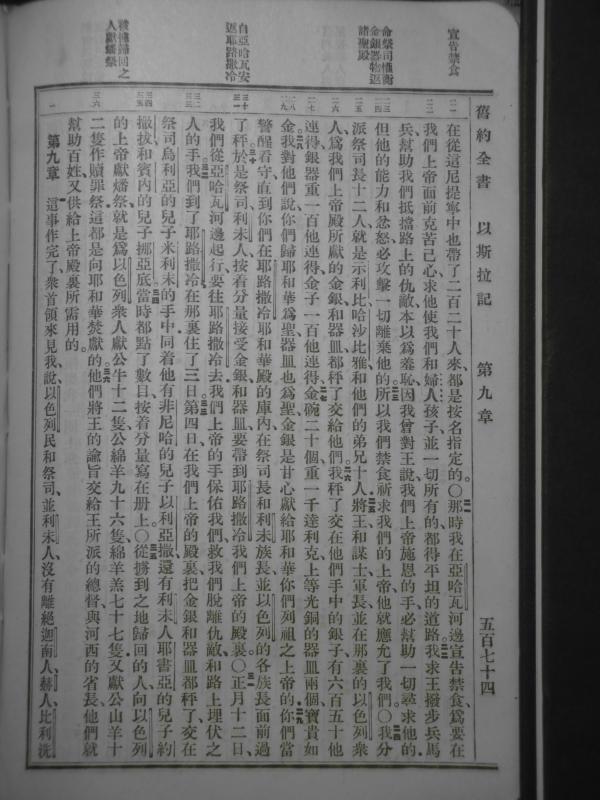 宣告禁食
命祭司權衡
金銀器物返
諸聖殿
自亞哈瓦安
返耶路撒冷
被擄歸回之
人獻燔祭
舊約全書 以斯拉記 第九章 五百七十四
在從這尼提寧中也帶了二百二十人來、都是按名指定的○那時我在亞哈瓦河邊宣告禁食、爲要在
我們上帝面前克苦己心、求他使我們和婦人孩子並一切所有的都得平坦的道路。我求王撥步兵馬
兵幫助我們抵擋路上的仇敵、本以爲羞恥、因我曾對王說、我們上帝施恩的手必幫助一切尋求他的、
但他的能力和忿怒必攻擊一切離棄他的。所以我們禁食祈求我們的上帝、他就應允了我們○我分
派祭司長十二人、就是示利比哈沙比雅和他們的弟兄十人、將王和謀士軍長並在那裏的以色列衆
人爲我們上帝殿所獻的金銀和器皿、都秤了交給他們。我秤了交在他們手中的銀子有六百五十他
連得、銀器重一百他連得、金子一百他連得、金碗二十個、重一千達利克、上等光銅的器皿兩個、寶貴如
金。我對他們說、你們歸耶和華爲聖、器皿也爲聖、金銀是甘心獻給耶和華你們列祖之上帝的。你們當
警醒看守、直到你們在耶路撒冷耶和華殿的庫內、在祭司長和利未族長並以色列的各族長面前過
了秤。於是祭司利未人按着分量接受金銀和器皿、要帶到耶路撒冷我們上帝的殿裏○正月十二日、
我們從亞哈瓦河邊起行、要往耶路撒冷去、我們上帝的手保佑我們、救我們脫離仇敵和路上埋伏之
人的手。我們到了耶路撒冷、在那裏住了三日。第四日、在我們上帝的殿裏把金銀和器皿都秤了、在
祭司烏利亞的兒子米利未的手中、同着他有非尼哈的兒子以利亞撒、還有利未人耶書亞的兒子約
撒拔、和賓內的兒子挪亞底。當時都點了數目、按着分量寫在册上○從擄到之地歸回的人向以色列
的上帝獻燔祭、就是爲以色列衆人獻公牛十二隻、公綿羊九十六隻、綿羊羔七十七隻、又獻公山羊十
二隻作贖罪祭、這都是向耶和華焚獻的。他們將王的諭旨交給王所派的總督與河西的省長、他們就
幫助百姓、又供給上帝殿裏所需用的。
第九章 這事作完了、衆首領來見我、說、以色列民和祭司並利未人、沒有離絕迦南人、赫人、比利洗